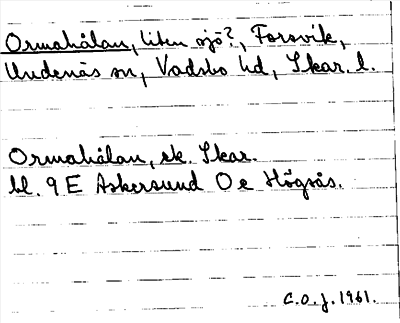 Ormahålan, liten sjö?, Forsvik,
Undenäs sn, Vadsbo hd, Skar. l.
Ormahålan, ek. Skar.
bl. 9 E Askersund O e Högsås.
C.O.J. 1961.